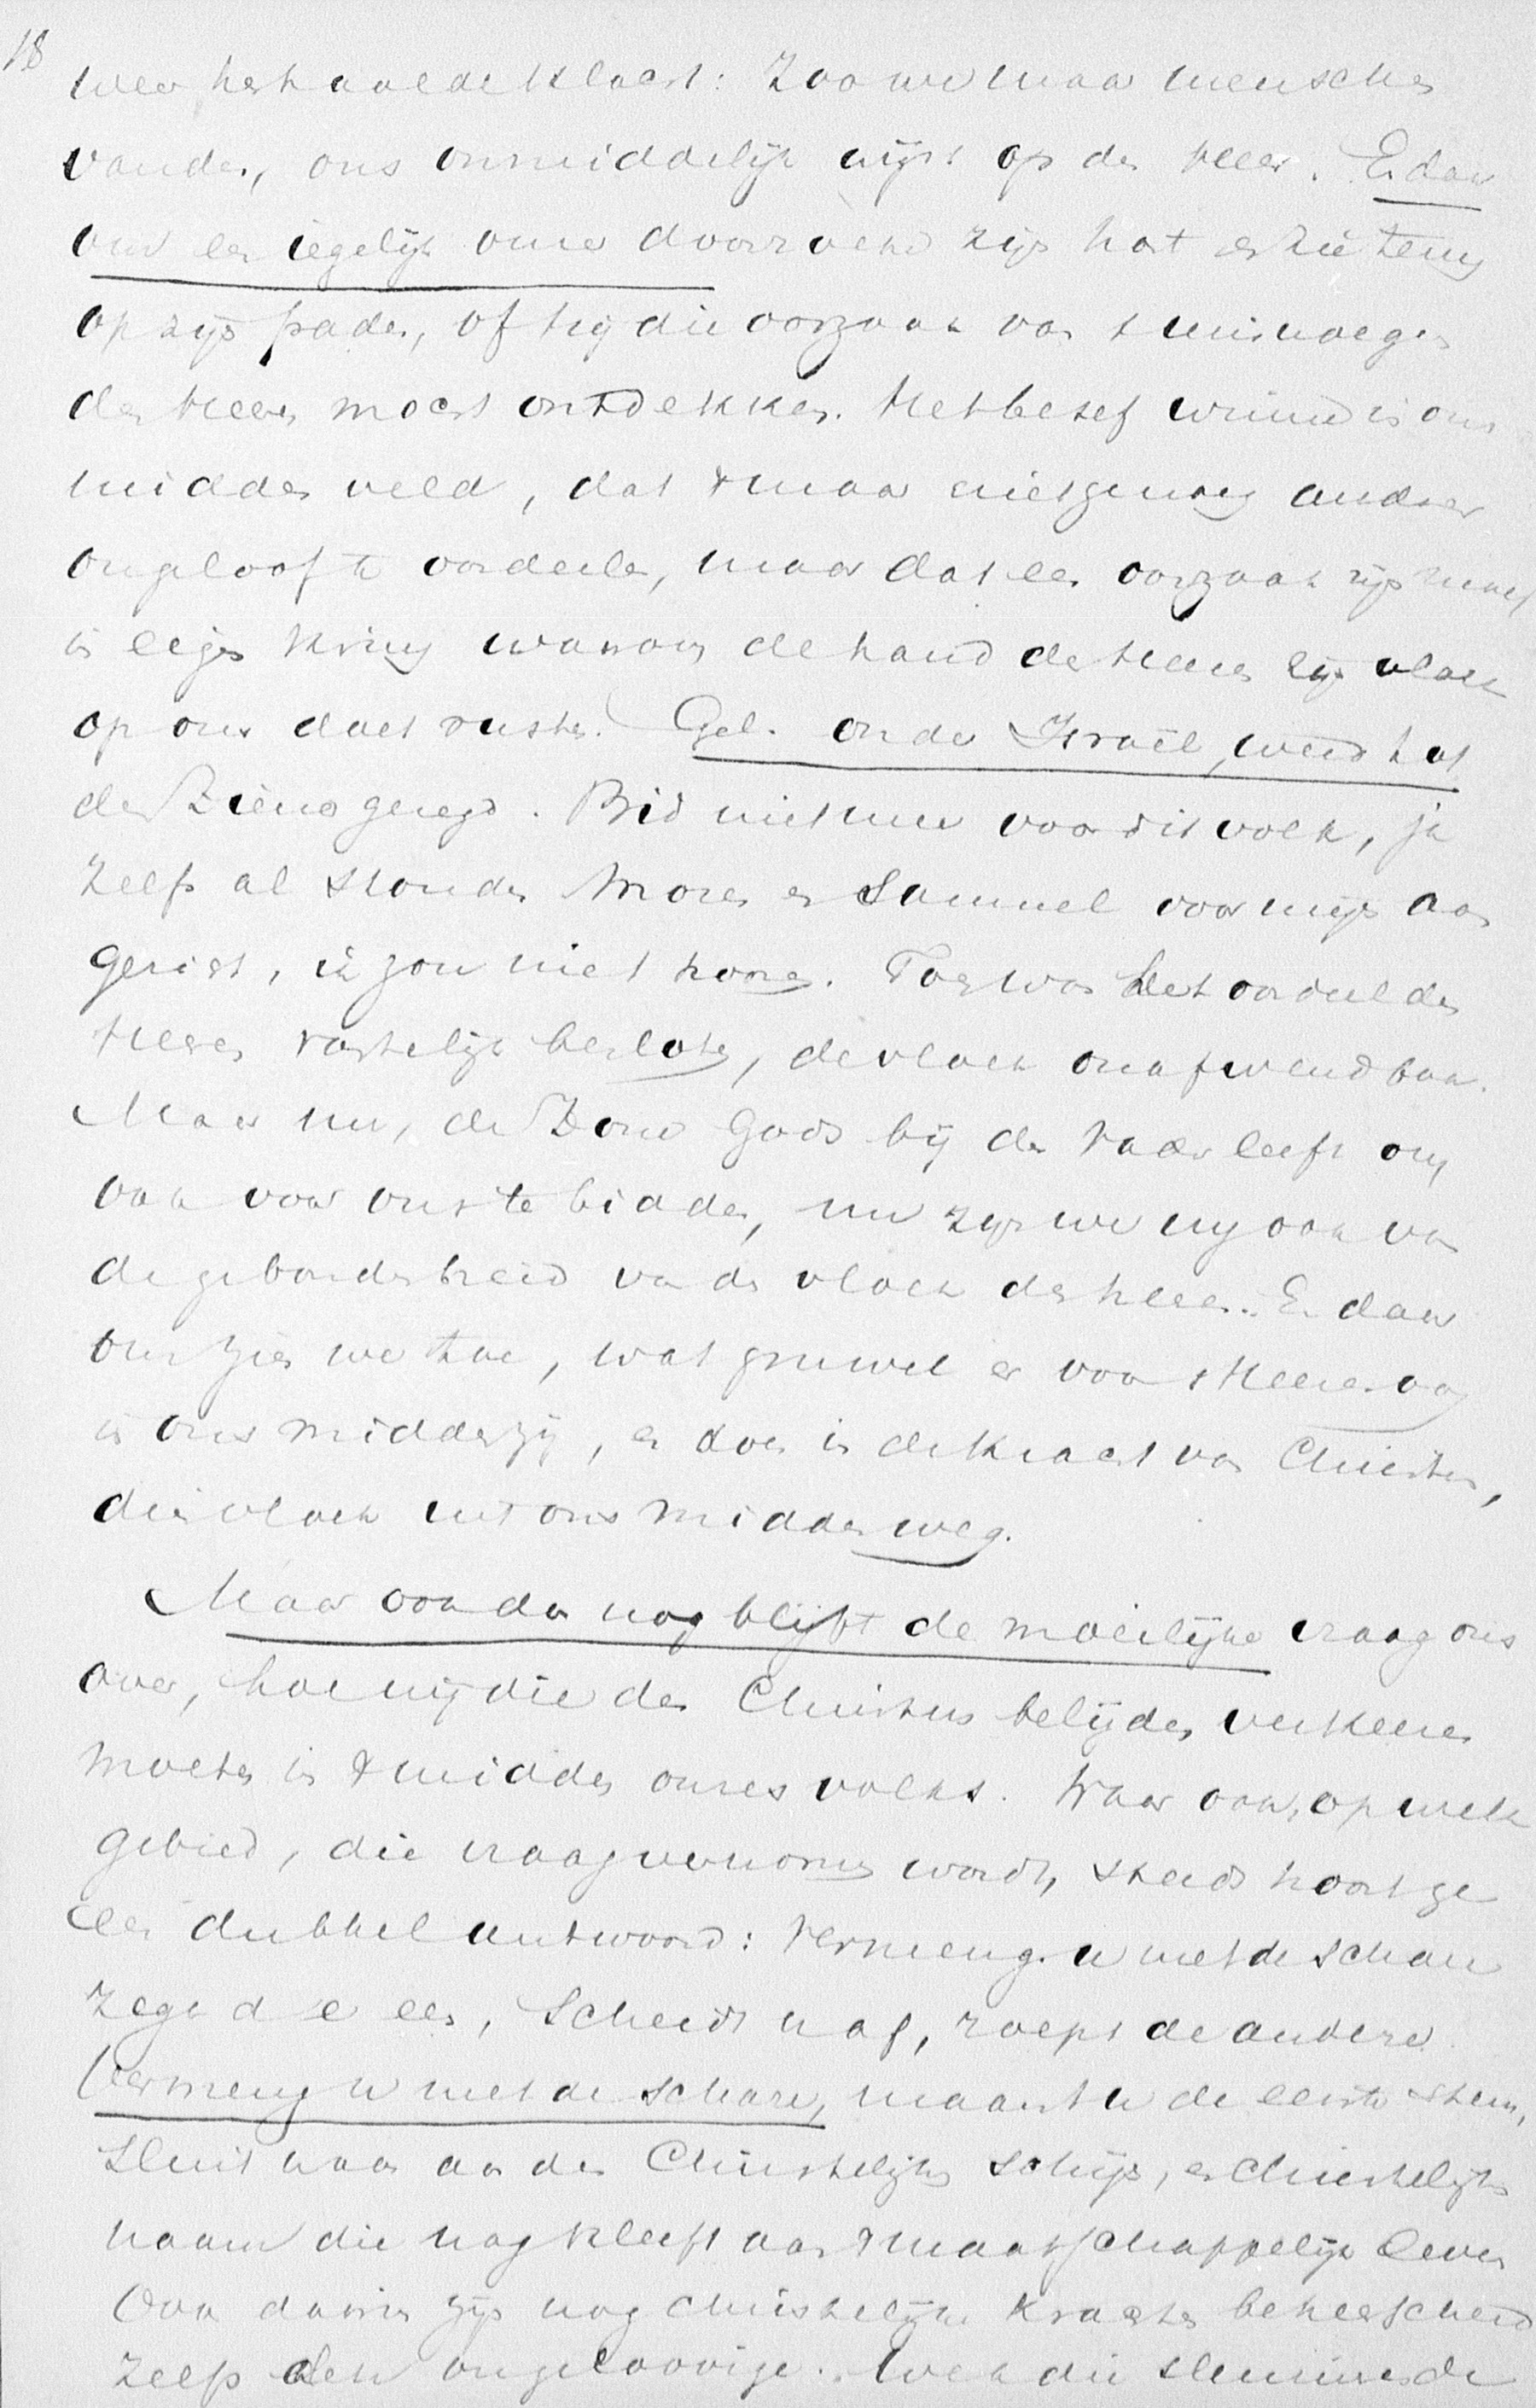 18
weer herhaalde klacht: Zoo we maar menschen
vonden, ons onmiddelijk wijst op den Heer. En daar
om een iegelijk onzer doorzoeke zijn hart en zie terug
op zijn paden, of hij die oorzaak van 't misnoegen
des Heeren mocht ontdekken. Het besef winne in ons
midden veld, dat 't maar niet genoeg anderer
ongeloof te oordeelen, maar dat een oorzaak zijn moet
in eigen kring waarom de hand des Heeren zijn vloek
op ons doet rusten. Gel. onder Israël, werd tot
den Ziener gezegd. Bid niet meer voor dit volk, ja
zelfs al stonden Mozes en Samuel voor mijn aan
gezicht, ik zou niet hooren. Toen was het oordeel des
Heeren vastelijk besloten, de vloek onafwendbaar.
Maar nu, de Zone Gods bij den Vader leeft om
ook voor ons te bidden, nu zijn we nog ook van
de gebondenheid van den vloek des Heeren. En daar
om zien we toe, wat gruwel er voor 's Heeren oog
in ons midden zij, en doen in de kracht van Christus,
dien vloek uit ons midden weg.
Maar ook dan nog blijft de moeilijke vraag ons
over, hoe wij die den Christus belijden, verkeeren
moeten in 't midden onzes volks. Waar ook, op welk
gebied, die vraag vernomen wordt, steeds hoort ge
een dubbel antwoord: Vermeng u met de schare
zegt de een, Scheidt u af, roept de andere.
Vermeng u met de schare, maant u de eerste stem,
Sluit u aan aan den Christelijken schijn, en Christelijken
naam die nog kleeft aan 't maatschappelijk leven
Ook daarin zijn nog christelijke krachten beheerschend
zelfs den ongeloovige. Wek die sluimerende